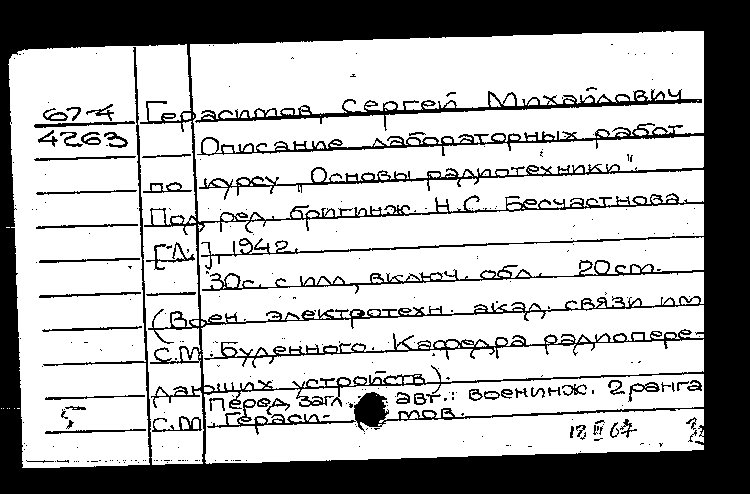 67-4 Герасимов, Сергей Михайлович
4263 Описание лабораторных работ
по курсу „Основы радиотехники".
Под ред. бригинж. Н.С. Бесчастнова.
[Л.], 1942.
30с. с илл., включ. обл. 20см.
(Воен. электротехн. акад. связи им
С.М. Буденного. Кафедра радиопере-
дающих устройств).
Перед загл. авт.: военинж. 2 ранга
5 С.М. Гераси- мов.
18 III 67